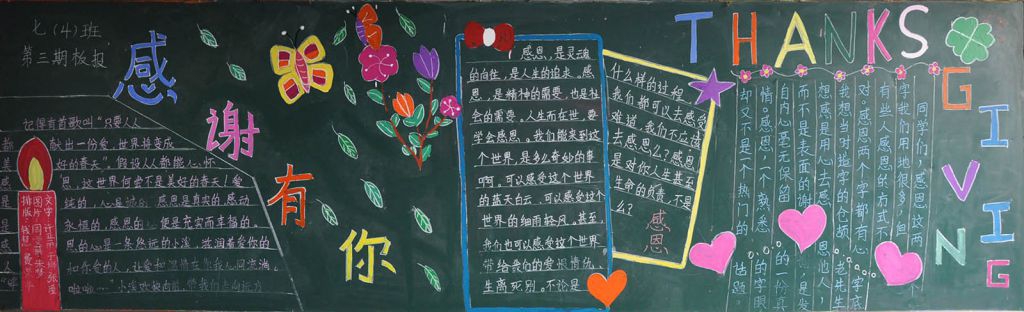 七(4)班
第三期板报
感谢有你
THANKS
GIVING
记得有首歌叫“只要人人
都献出一份爱，世界将变成
美好的春天”。假设人人都能心怀
感恩，这世界何尝不是美好的春天！爱
是纯的，心是诚的，感恩是真实的，感动
是永恒的，感恩的心便是充实而幸福的，
感恩的心是一条悠远的小溪，滋润着爱你的
人和你爱的人，让爱和温情在你我心间流淌。
感恩，是灵魂
的向往，是人生的追求，感
恩，是精神的需要，也是社
会的需要，人生而在世，要
学会感恩。我们能来到这
个世界，是多么奇妙的事
啊。可以感受这个世界
的蓝天白云，可以感受这个
世界的细雨轻风，甚至，
我们也可以感受这个世界
带给我们的爱恨情仇、
生离死别。不论是
什么样的过程，
我们都可以去感知，
难道，我们不应该
去感恩么？感恩
是对你人生甚至
生命的负责，不是
么？
感恩
同学们，感恩这两个
字我们用地很多，但
有些人感恩的方式不
对。感恩两个字都有心字底
我想当时造字的仓颉老先生
想感恩是用心去感恩他人，
而不是表面的谢
自内心毫无保留的一份真
情。感恩，一个熟悉的字眼
却又不是一个热门的话题。